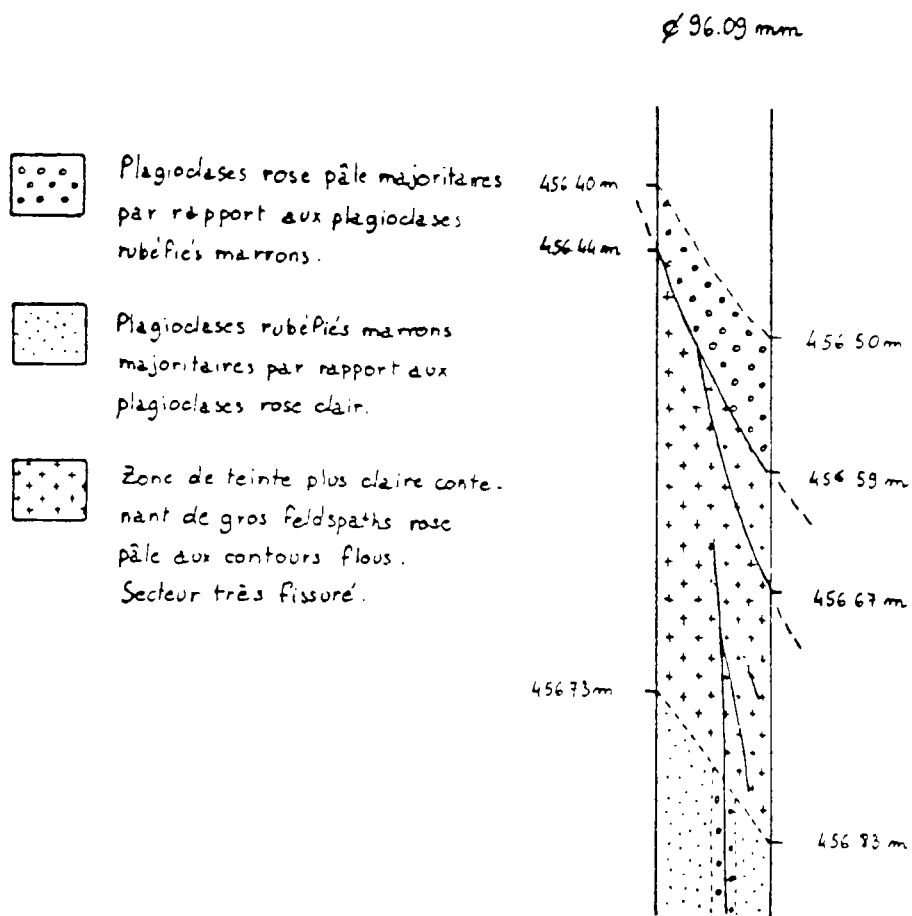 ∅ 96.09 mm
Plagioclases rose pâle majoritaires
par rapport aux plagioclases
rubéfiés marrons.
Plagioclases rubéfiés marrons
majoritaires par rapport aux
plagioclases rose clair.
Zone de teinte plus claire conte-
nant de gros feldspaths rose
pâle aux contours flous.
Secteur très fissuré.
456 40 m
456 44 m
456 50 m
456 59 m
456 67 m
456 73 m
456 83 m